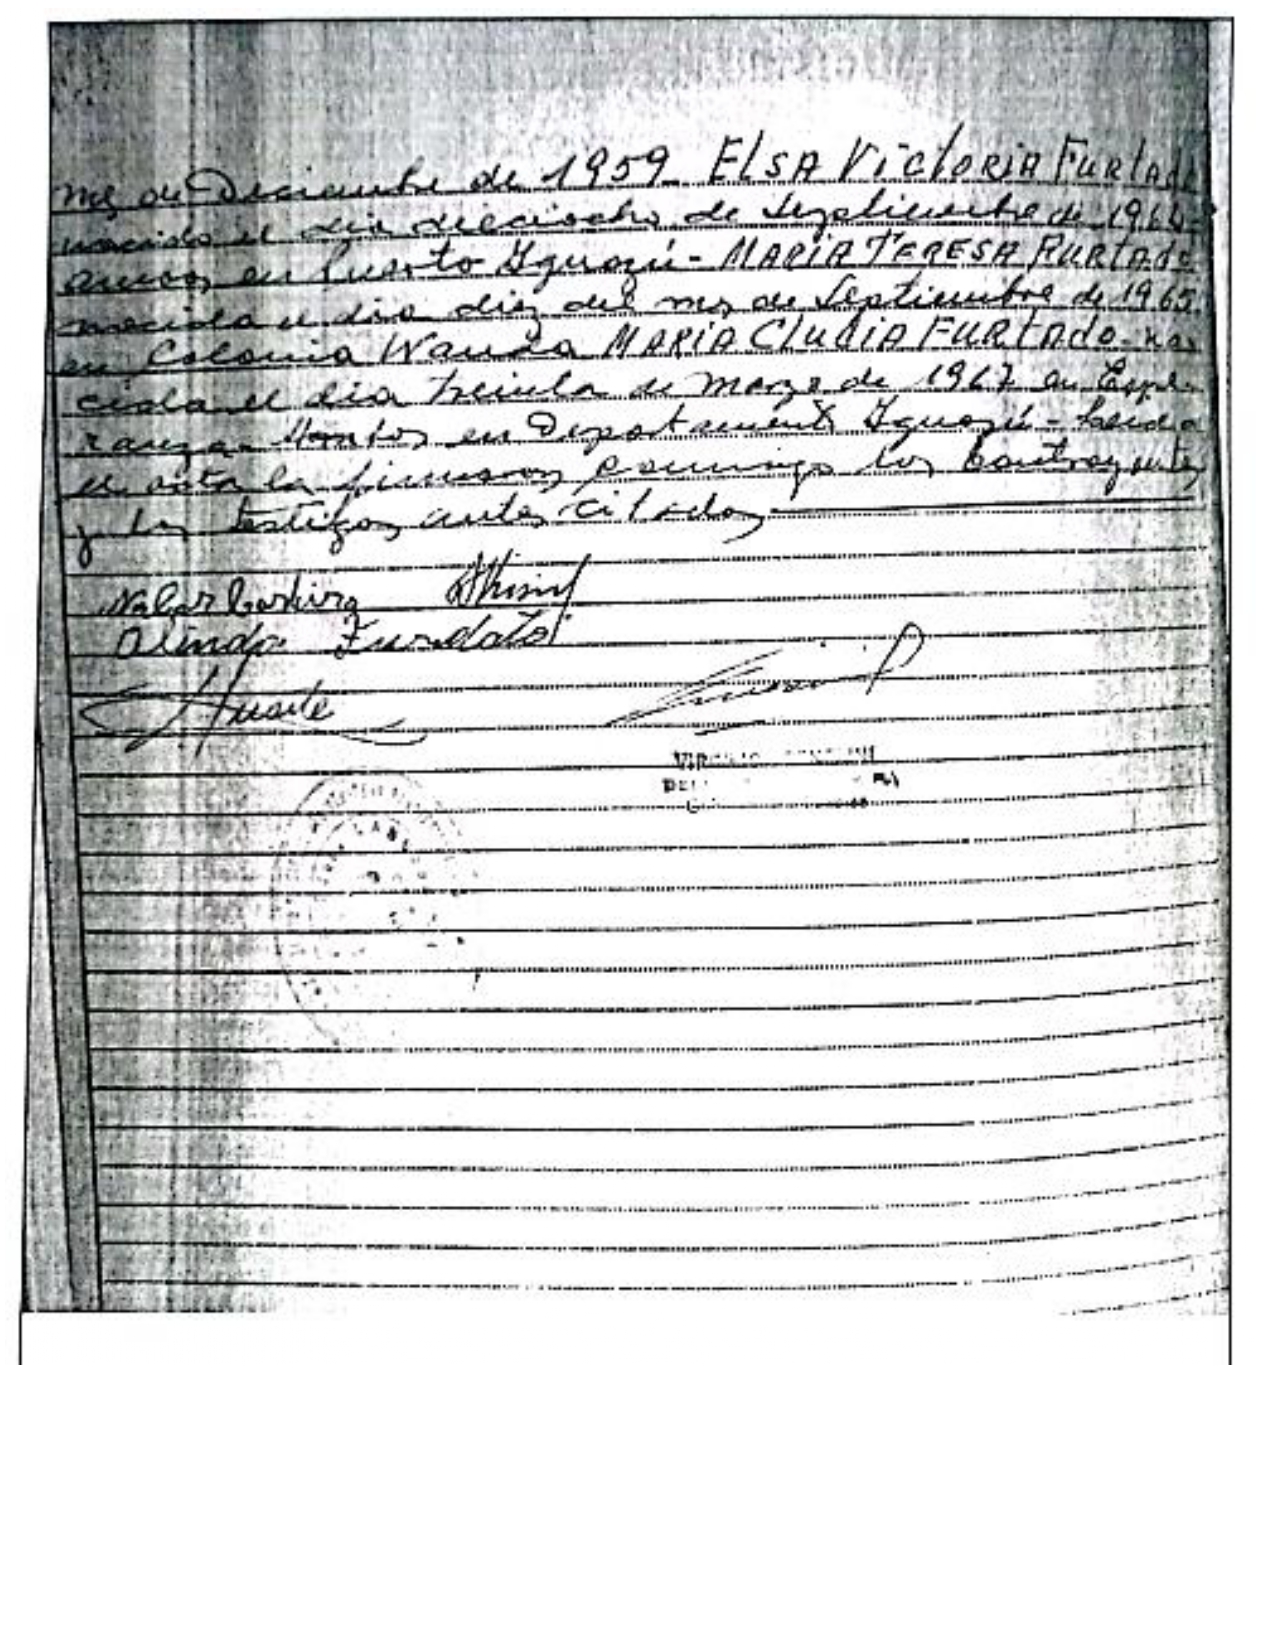 mes de Diciembre de 1959 ELSA VICTORIA FURTADO
nacida el dia dieciocho de Septiembre de 1964
en Puerto Iguazú - MARIA TERESA FURTADO
nacida el dia diez del mes de Septiembre de 1965
en Colonia Wanda MARIA CLUDIA FURTADO. na
cida el dia treinta de Marzo de 1967 en Espe
ranza en Departamento Iguazú - Leida
el acta la firmaron conmigo los Contrayentes
y los testigos antes citados
Olindo Furdato